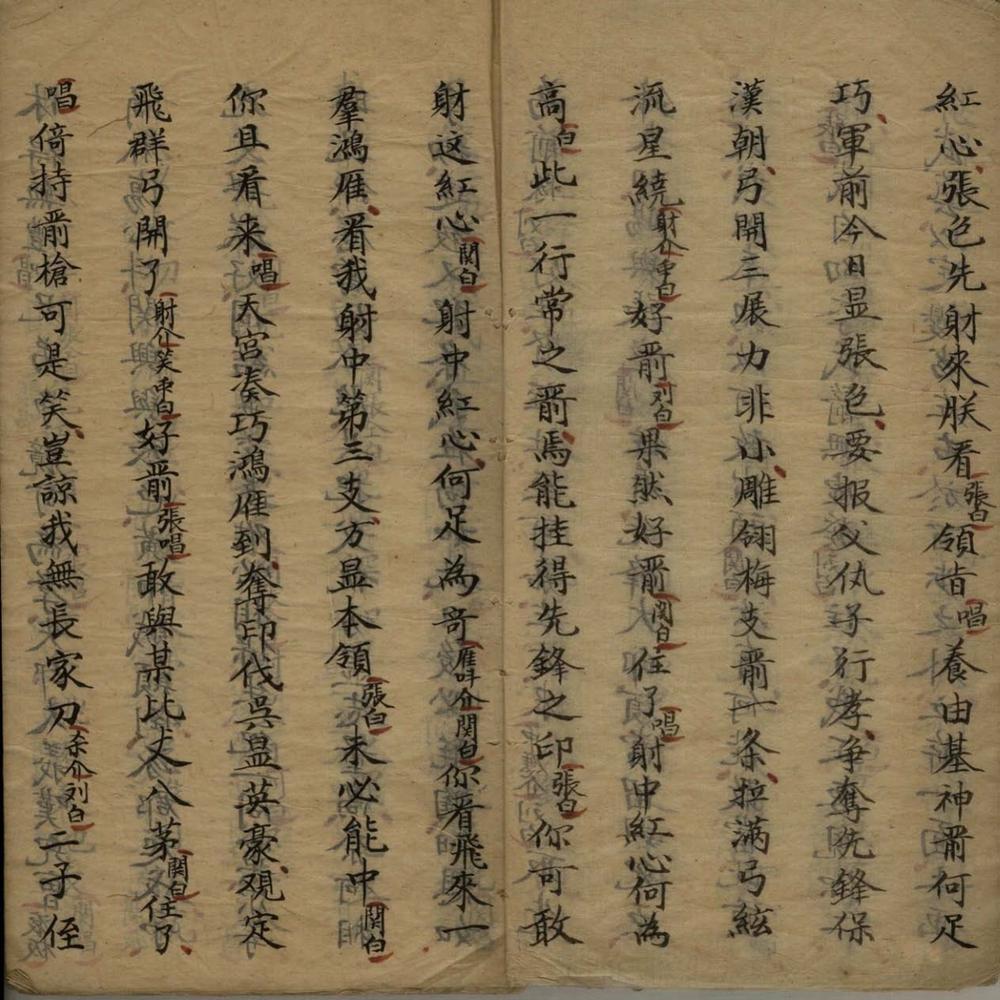 紅心張色先財來朕看張白領旨唱養由基神箭何足
巧軍前今日显張色要报父仇子行孝争奪先鋒保
漢朝弓開三展力非小雕翎梅支箭一条拉满弓絃
流星繞財介中白好箭刘白果然好箭関白住了唱射中紅心何為
高白此一行常之箭焉能挂得先鋒之印張白你可敢
射这紅心関白射中紅心何足為奇雁叫介関白你看飛來一
羣鴻雁看我射中第三支方显本領張白未必能中関白
你且看来唱天宫凑巧鴻雁到奪印伐吳显英豪观定
飛群弓開了財介笑中白好箭張唱敢與某比丈八茅関白住了
唱倚持箭槍可是笑豈諒我無長家刀杀介刘白二子侄